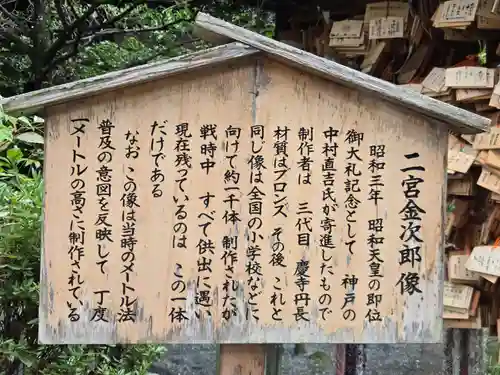 二宮金次郎像
昭和三年 昭和天皇の即位
御大札記念として 神戸の
中村直吉氏が寄進したもので
制作者は 三代目 慶寺丹長
材質はブロンズ その後 これと
同じ像は全国の小学校などに
向けて約一千体 制作されたが
戦時中 すべて供出に遇い
現在残っているのは この一体
だけである
なお この像は当時のメートル法
普及の意図を反映して 丁度
一メートルの高さに制作されている